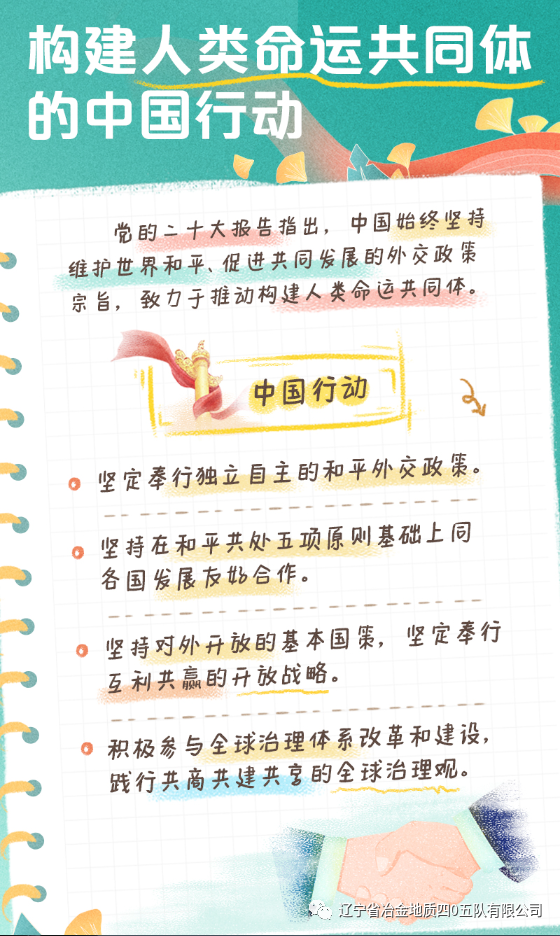 构建人类命运共同体
的中国行动
党的二十大报告指出，中国始终坚持
维护世界和平、促进共同发展的外交政策
宗旨，致力于推动构建人类命运共同体。
中国行动
坚定奉行独立自主的和平外交政策。
坚持在和平共处五项原则基础上同
各国发展友好合作。
坚持对外开放的基本国策，坚定奉行
互利共赢的开放战略。
积极参与全球治理体系改革和建设，
践行共商共建共享的全球治理观。
辽宁省冶金地质四0五队有限公司